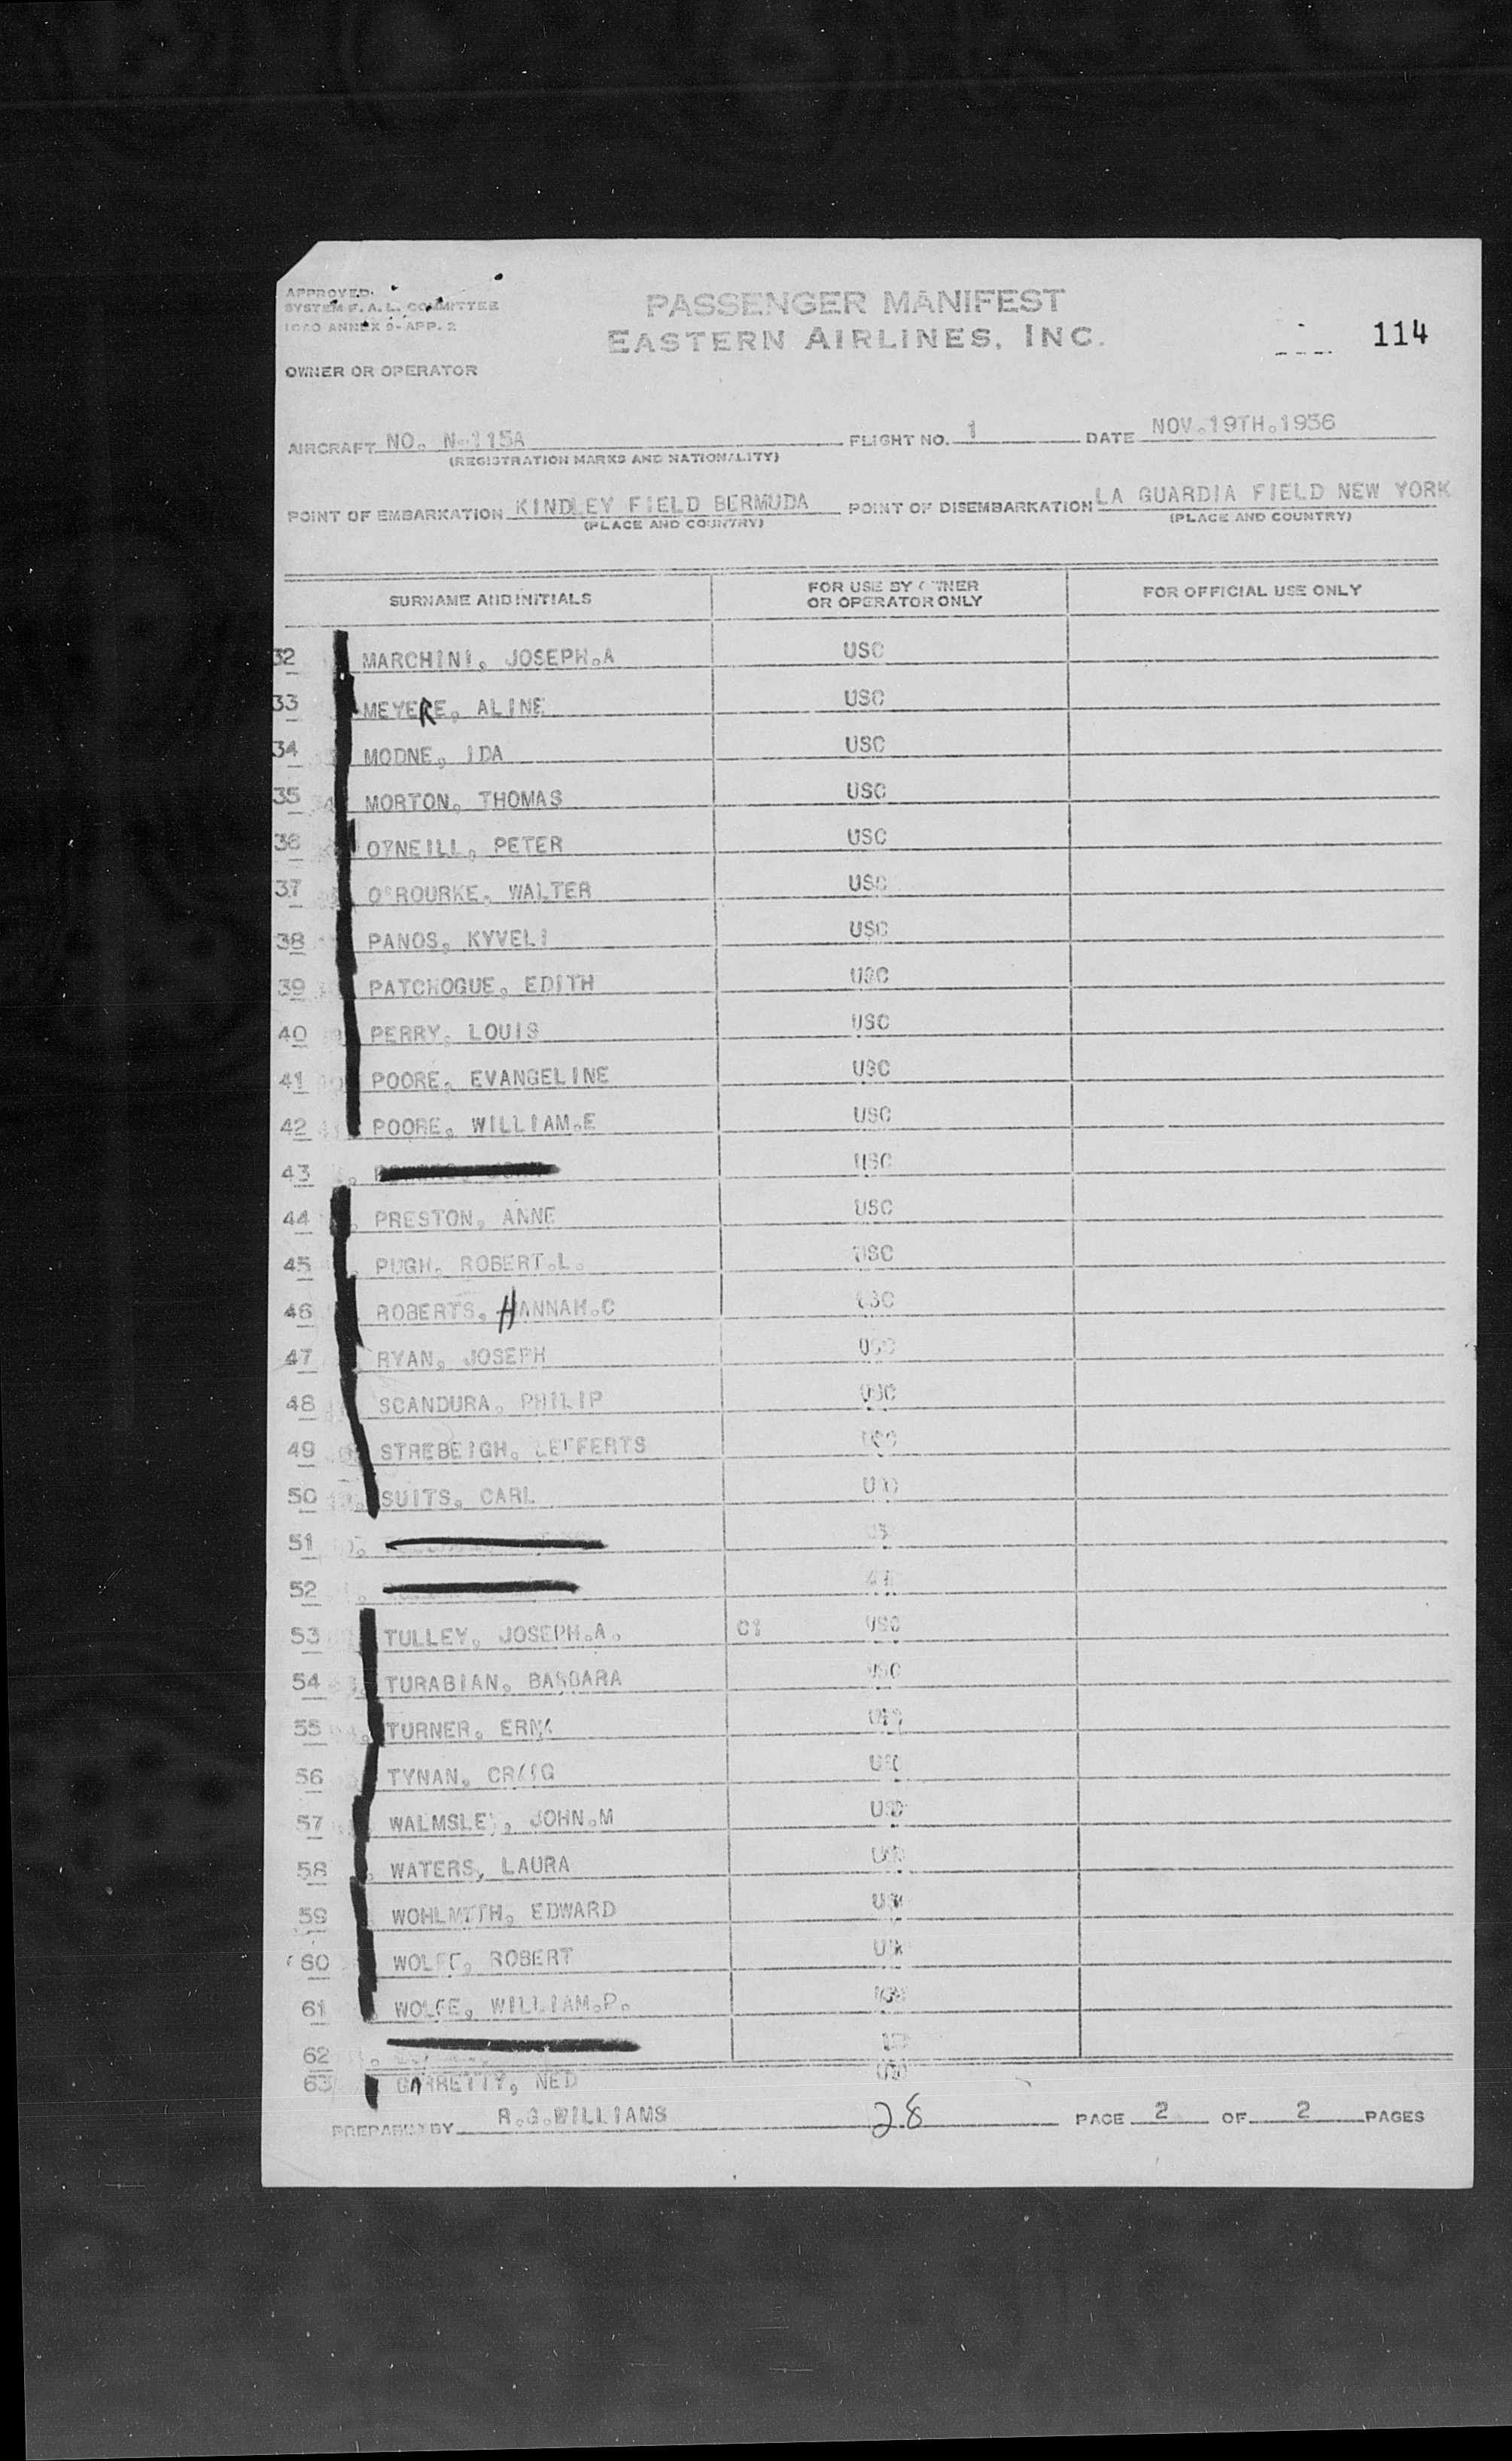 APPROVED
SYSTEM F. A. L. COMMITTEE
ICAO ANNEX 9-APP. 2
PASSENGER MANIFEST
EASTERN AIRLINES, INC.
114
OWNER OR OPERATOR
AIRCRAFT NO. N-115A FLIGHT NO. 1 DATE NOV.19TH.1956
(REGISTRATION MARKS AND NATIONALITY)
POINT OF EMBARKATION KINDLEY FIELD BERMUDA POINT OF DISEMBARKATION LA GUARDIA FIELD NEW YORK
(PLACE AND COUNTRY) (PLACE AND COUNTRY)
SURNAME AND INITIALS FOR USE BY OWNER OR OPERATOR ONLY FOR OFFICIAL USE ONLY
32 MARCHINI, JOSEPH.A USC
33 MEYERE, ALINE USC
34 MODNE, IDA USC
35 MORTON, THOMAS USC
36 O'NEILL, PETER USC
37 O'ROURKE, WALTER USC
38 PANOS, KYVELI USC
39 PATCHOGUE, EDITH USC
40 PERRY, LOUIS USC
41 POORE, EVANGELINE USC
42 POORE, WILLIAM.E USC
43 USC
44 PRESTON, ANNE USC
45 PUGH, ROBERT.L. USC
46 ROBERTS, HANNAH.C USC
47 RYAN, JOSEPH USC
48 SCANDURA, PHILIP USC
49 STREBEIGH, LEFFERTS USC
50 SUITS, CARL USC
51
52
53 TULLEY, JOSEPH.A. USC
54 TURABIAN, BARBARA USC
55 TURNER, USC
56 TYNAN, CRAIG USC
57 WALMSLEY, JOHN.M USC
58 WATERS, LAURA USC
59 EDWARD
60 WOLFE, ROBERT
61 WOLFE, WILLIAM.P.
62
63 GARRETTY, NED
PREPARED BY R.G.WILLIAMS 28 PAGE 2 OF 2 PAGES